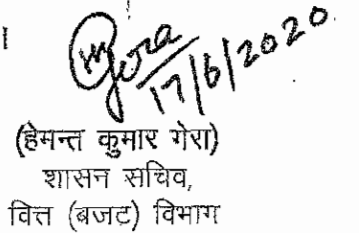 ।
Gera
17/6/2020
(हेमन्त कुमार गेरा)
शासन सचिव,
वित्त (बजट) विभाग